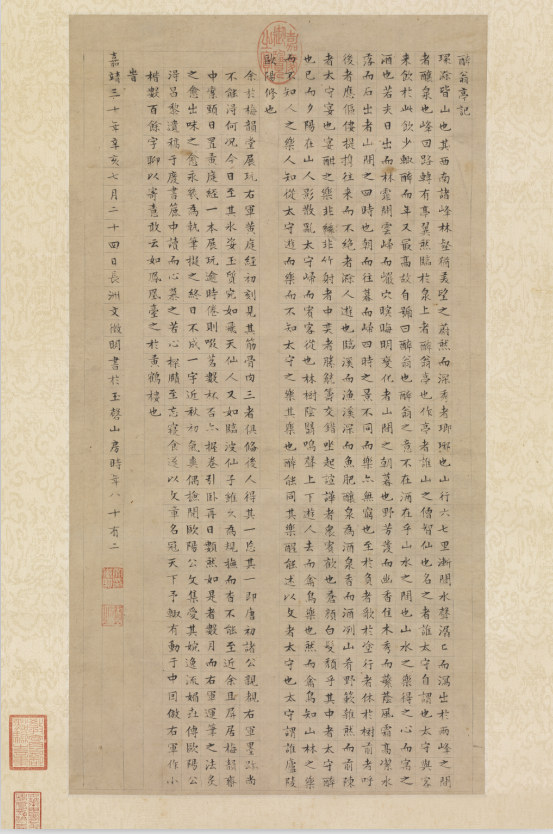 醉翁亭記
環滁皆山也其西南諸峰林壑猶美望之蔚然而深秀者瑯琊也山行六七里漸聞水聲潺潺而瀉出於兩峰之間
者釀泉也峰回路轉有亭翼然臨於泉上者醉翁亭也作亭者誰山之僧智仙也名之者誰太守自謂也太守與客
來飲於此飲少輒醉而年又最高故自號曰醉翁也醉翁之意不在酒在乎山水之間也山水之樂得之心而寓之
酒也若夫日出而林霏開雲歸而巖穴暝晦明變化者山間之朝暮也野芳發而幽香佳木秀而繁陰風霜高潔水
落而石出者山間之四時也朝而往暮而歸四時之景不同而樂亦無窮也至於負者歌於塗行者休於樹前者呼
後者應傴僂提攜往來而不絕者滁人遊也臨溪而漁溪深而魚肥釀泉為酒泉香而酒冽山肴野蔌雜然而前陳
者太守宴也宴酣之樂非絲非竹射者中奕者勝觥籌交錯坐起諠譁者衆賓歡也蒼顏白髮頹乎其中者太守醉
也已而夕陽在山人影散亂太守歸而賓客從也林樹陰翳鳴聲上下遊人去而禽鳥樂也然而禽鳥知山林之樂
而不知人之樂人知從太守遊而樂而不知太守之樂其樂也醉能同其樂醒能述以文者太守也太守謂誰廬陵
歐陽修也
余於梅韻堂展玩右軍黃庭經初刻見其筋骨肉三者俱備後人得其一忘其一即唐初諸公親覩右軍墨跡尚
不能得何況今日至其水姿玉質宛如飛天仙人又如臨波仙子雖久為規撫而杳不能至近余且屏居梅韻齋
中案頭日置黃庭經一本展玩逾時倦則啜茗數杯否亦握卷引臥再日然如是者數月而右軍運筆之法炙
之愈出味之愈永為執筆擬之終日不成一字近秋初氣爽偶撫閱歐陽公文集愛其婉逸流媚傳歐陽公
得呂黎遺稿于廢書簏中讀而心慕之苦心探賾至忘寢食遂以文章名冠天下予輒有動于中因倣右軍作小
楷數百餘字聊以寄意敢云如鳳凰臺之於黃鶴樓也
旹
嘉靖三十年辛亥七月二十四日長洲文徵明書於玉磬山房時年八十有二